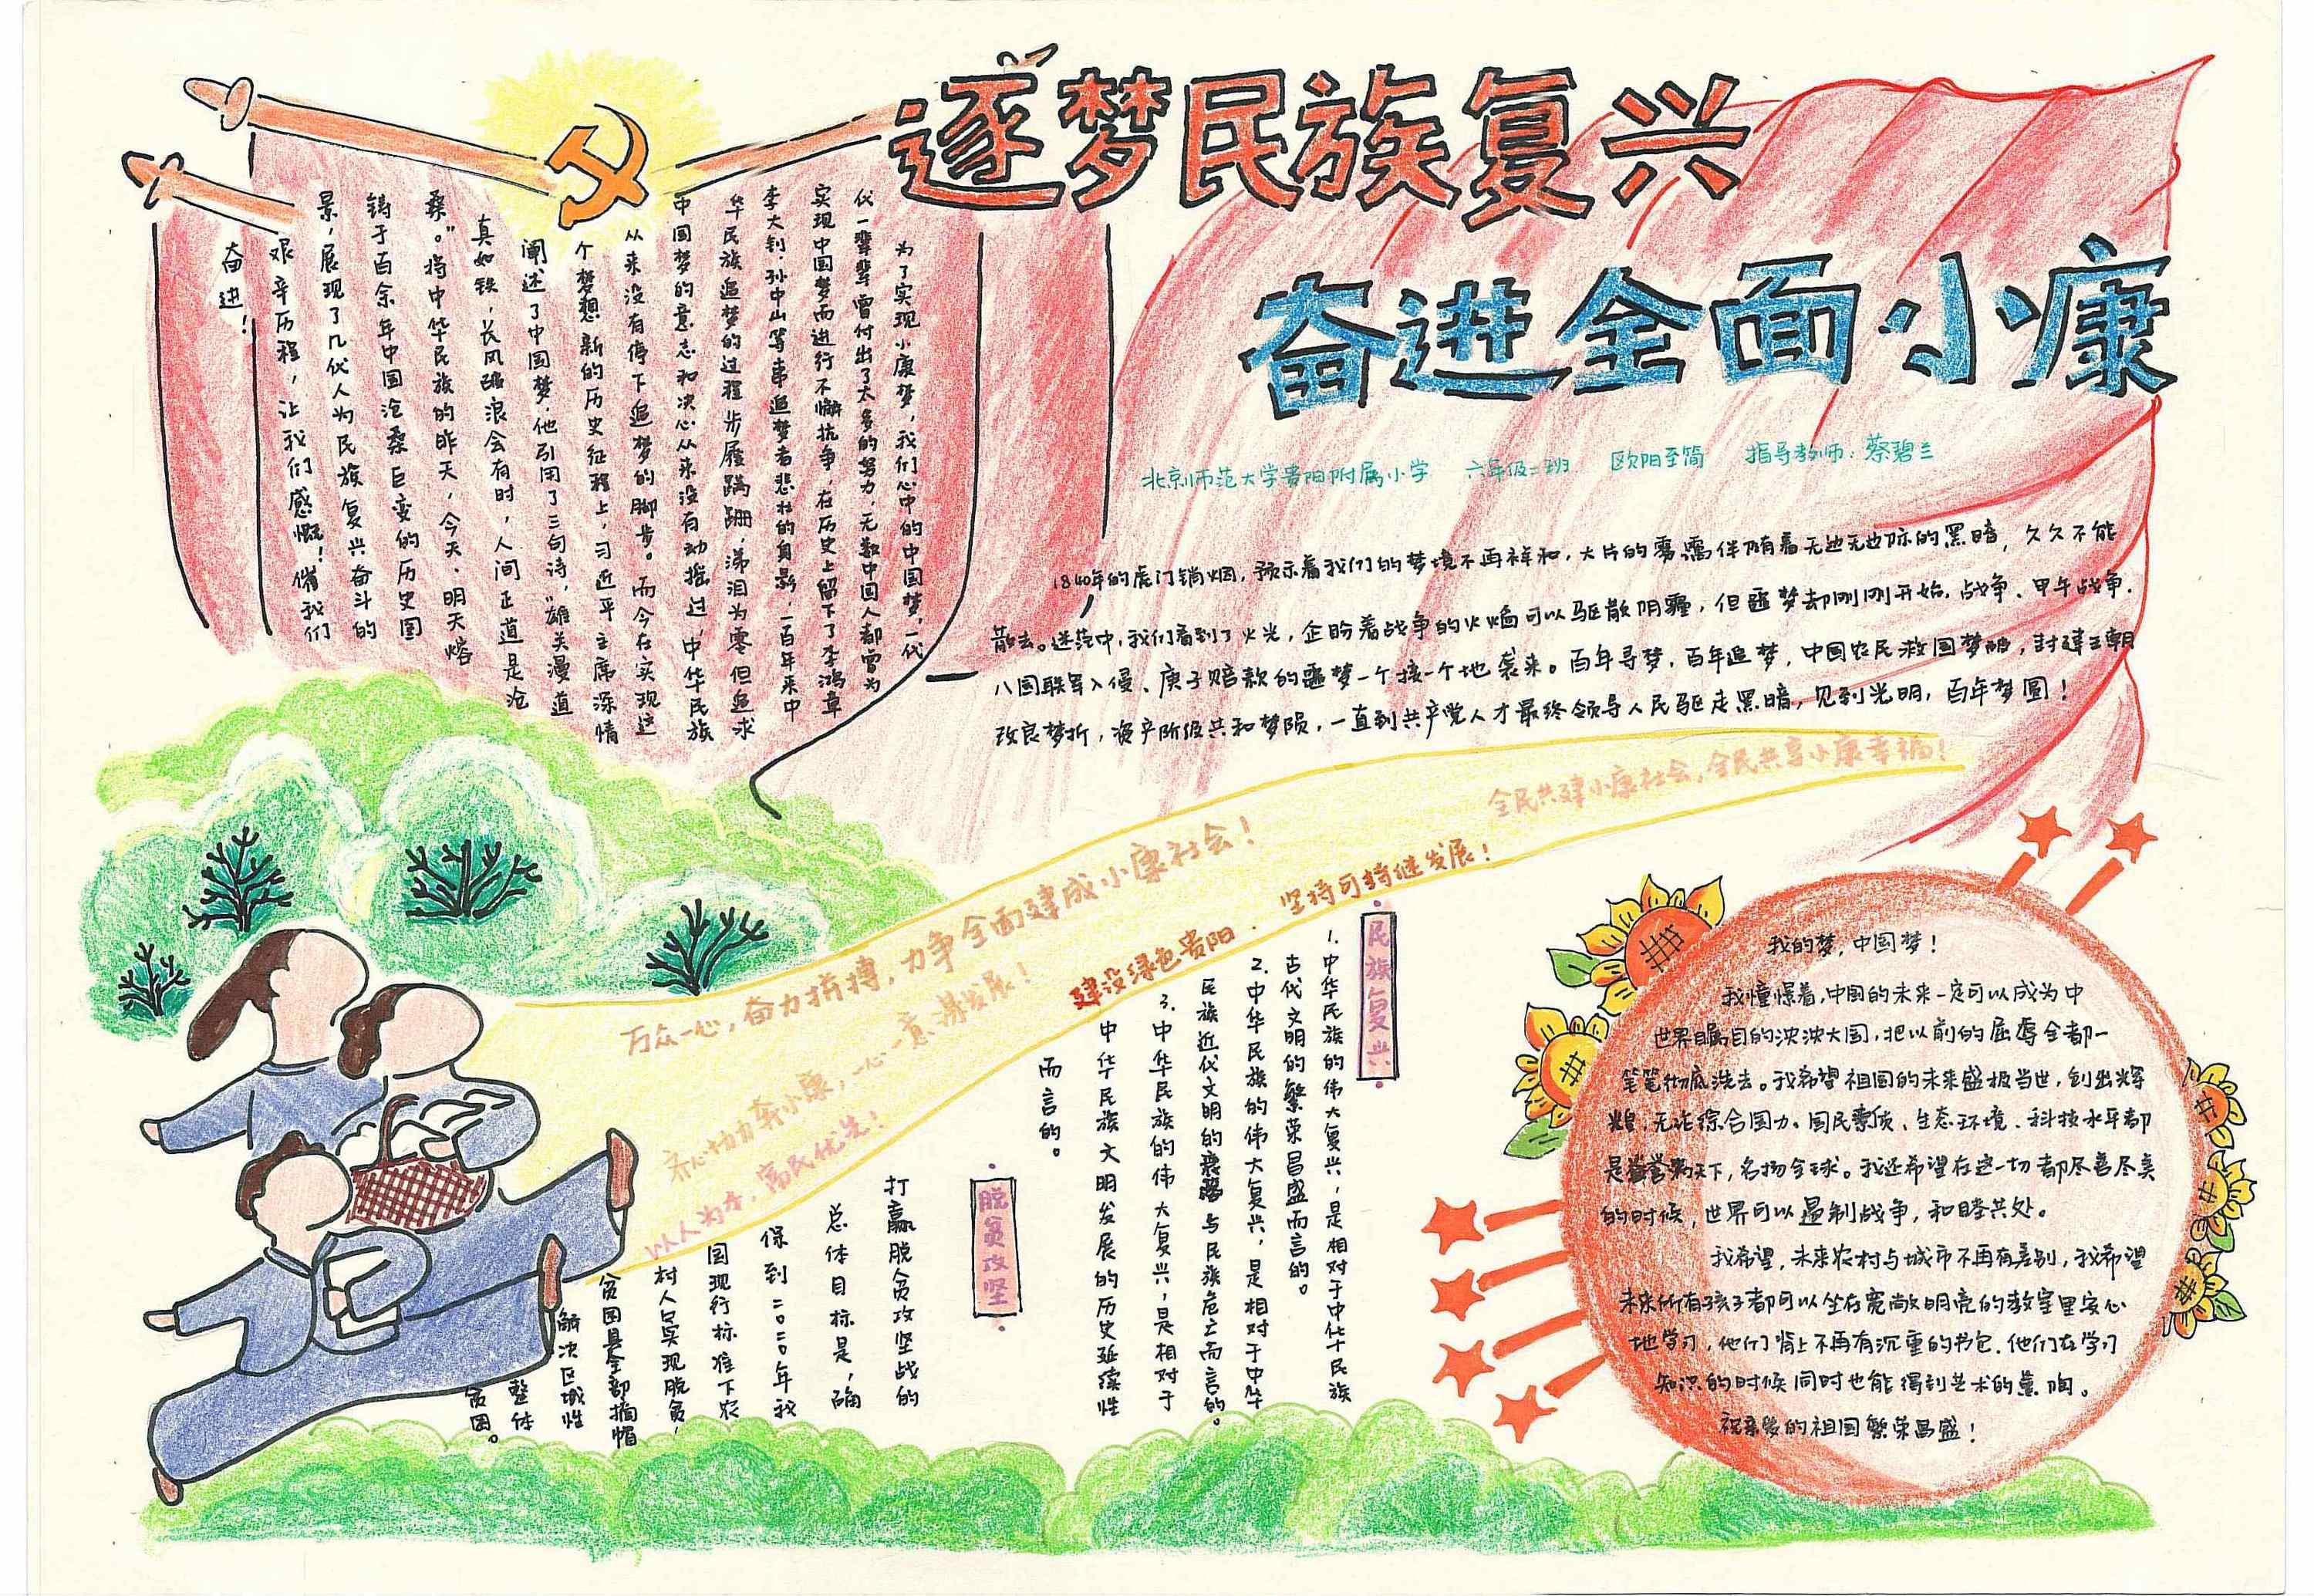 逐梦民族复兴
奋进全面小康
北京师范大学贵阳附属小学 六年级二班 欧阳至简 指导教师：蔡碧兰
为了实现小康梦，我们心中的中国梦，一代
代一辈辈曾付出了太多的努力，无数中国人都曾为
实现中国梦而进行不懈抗争，在历史上留下了李鸿章
李大钊、孙中山等串追梦者悲壮的身影，一百年来中
华民族追梦的过程步履蹒跚，涕泪为零但追求
中国梦的意志和决心从来没有动摇过，中华民族
从来没有停下追梦的脚步。而今在实现这
个梦想新的历史征程上，习近平主席深情
阐述了中国梦，他引用了三句诗，“雄关漫道
真如铁，长风破浪会有时，人间正道是沧
桑。”将中华民族的昨天，今天、明天熔
铸于百余年中国沧桑巨变的历史图
景，展现了几代人为民族复兴奋斗的
艰辛历程，让我们感慨！催我们
奋进！
1840年的虎门销烟，预示着我们的梦境不再祥和，大片的雾霭伴随着无边无际的黑暗，久久不能
散去。迷茫中，我们看到了火光，企盼着战争的火焰可以驱散阴霾，但噩梦却刚刚开始，战争、甲午战争、
八国联军入侵、庚子赔款的噩梦一个接一个地袭来。百年寻梦，百年追梦，中国农民救国梦破，封建王朝
改良梦折，资产阶级共和梦陨，一直到共产党人才最终领导人民驱走黑暗，见到光明，百年梦圆！
全民共建小康社会，全民共享小康幸福！
万众一心，奋力拼搏，力争全面建成小康社会！
建设绿色贵阳，坚持可持继发展！
齐心协力奔小康，一心一意谋发展！
以人为本，富民优先！
民族复兴
1.中华民族的伟大复兴，是相对于中华民族
古代文明的繁荣昌盛而言的。
2.中华民族的伟大复兴，是相对于中华
民族近代文明的衰落与民族危亡而言的。
3.中华民族的伟大复兴，是相对于
中华民族文明发展的历史延续性
而言的。
脱贫攻坚
打赢脱贫攻坚战的
总体目标是，确
保到二〇二〇年我
国现行标准下农
村人口实现脱贫，
贫困县全部摘帽
解决区域性
整体
贫困。
我的梦，中国梦！
我憧憬着，中国的未来一定可以成为中
世界瞩目的泱泱大国，把以前的屈辱全都一
笔笔彻底洗去。我希望祖国的未来盛极当世，创出辉
煌，无论综合国力、国民素质、生态环境、科技水平都
是誉满天下，名扬全球。我还希望在这一切都尽善尽美
的时候，世界可以遏制战争，和睦共处。
我希望，未来农村与城市不再有差别，我希望
未来所有孩子都可以坐在宽敞明亮的教室里安心
地学习，他们背上不再有沉重的书包，他们在学习
知识的时候同时也能得到艺术的熏陶。
祝亲爱的祖国繁荣昌盛！